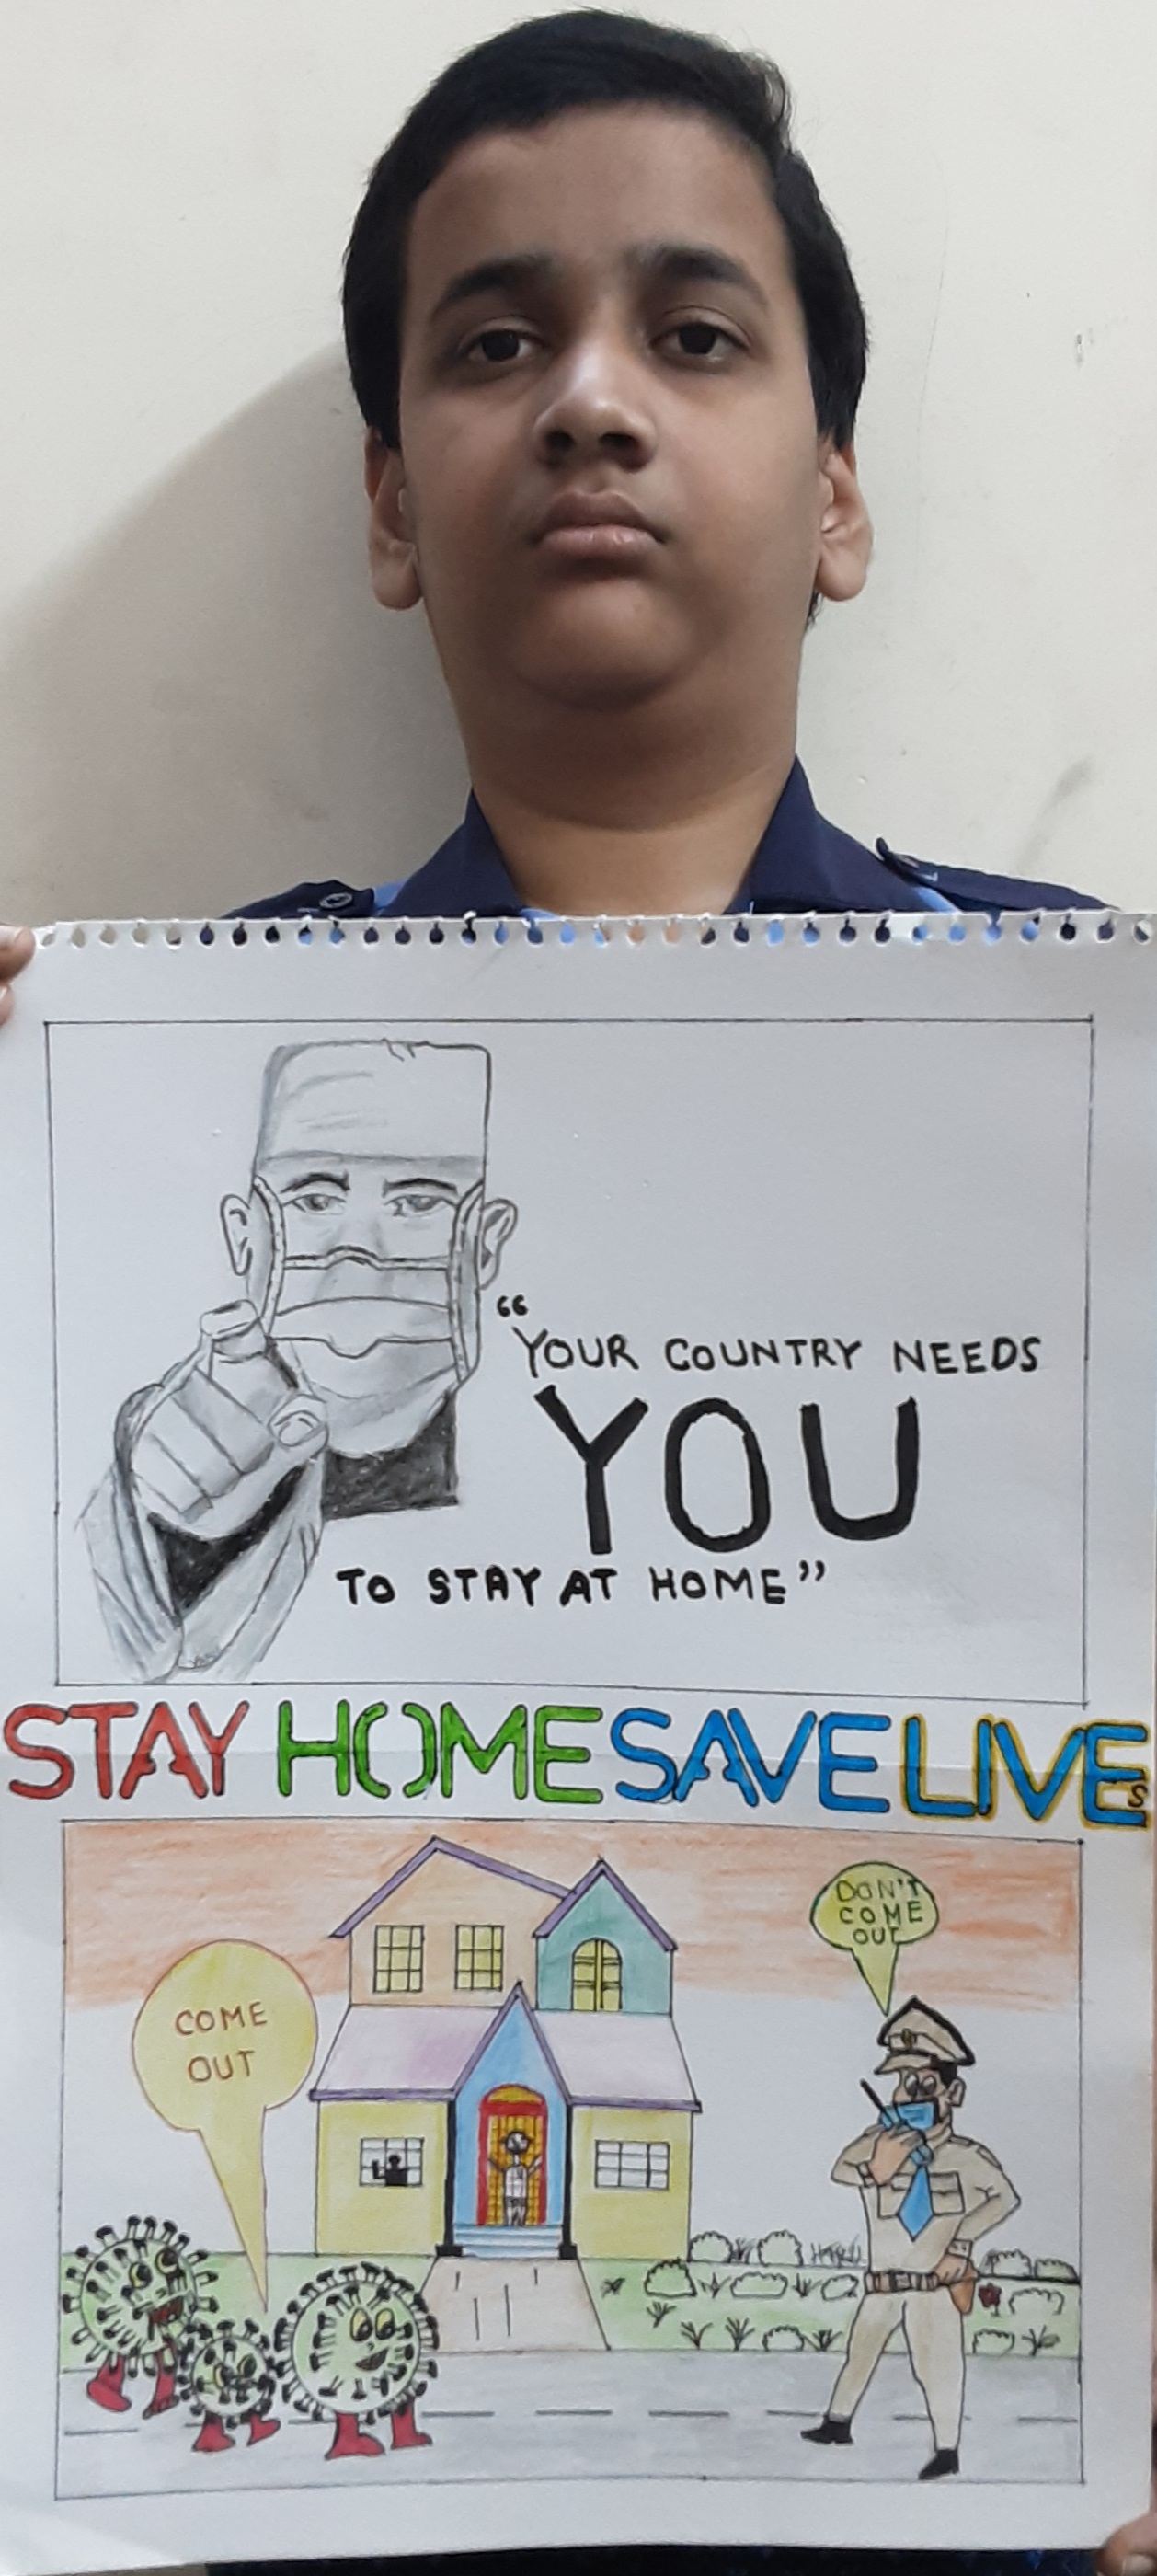 “
YOUR COUNTRY NEEDS
YOU
TO STAY AT HOME”
STAY HOME SAVE LIVEs
DON'T
COME
OUT
COME
OUT